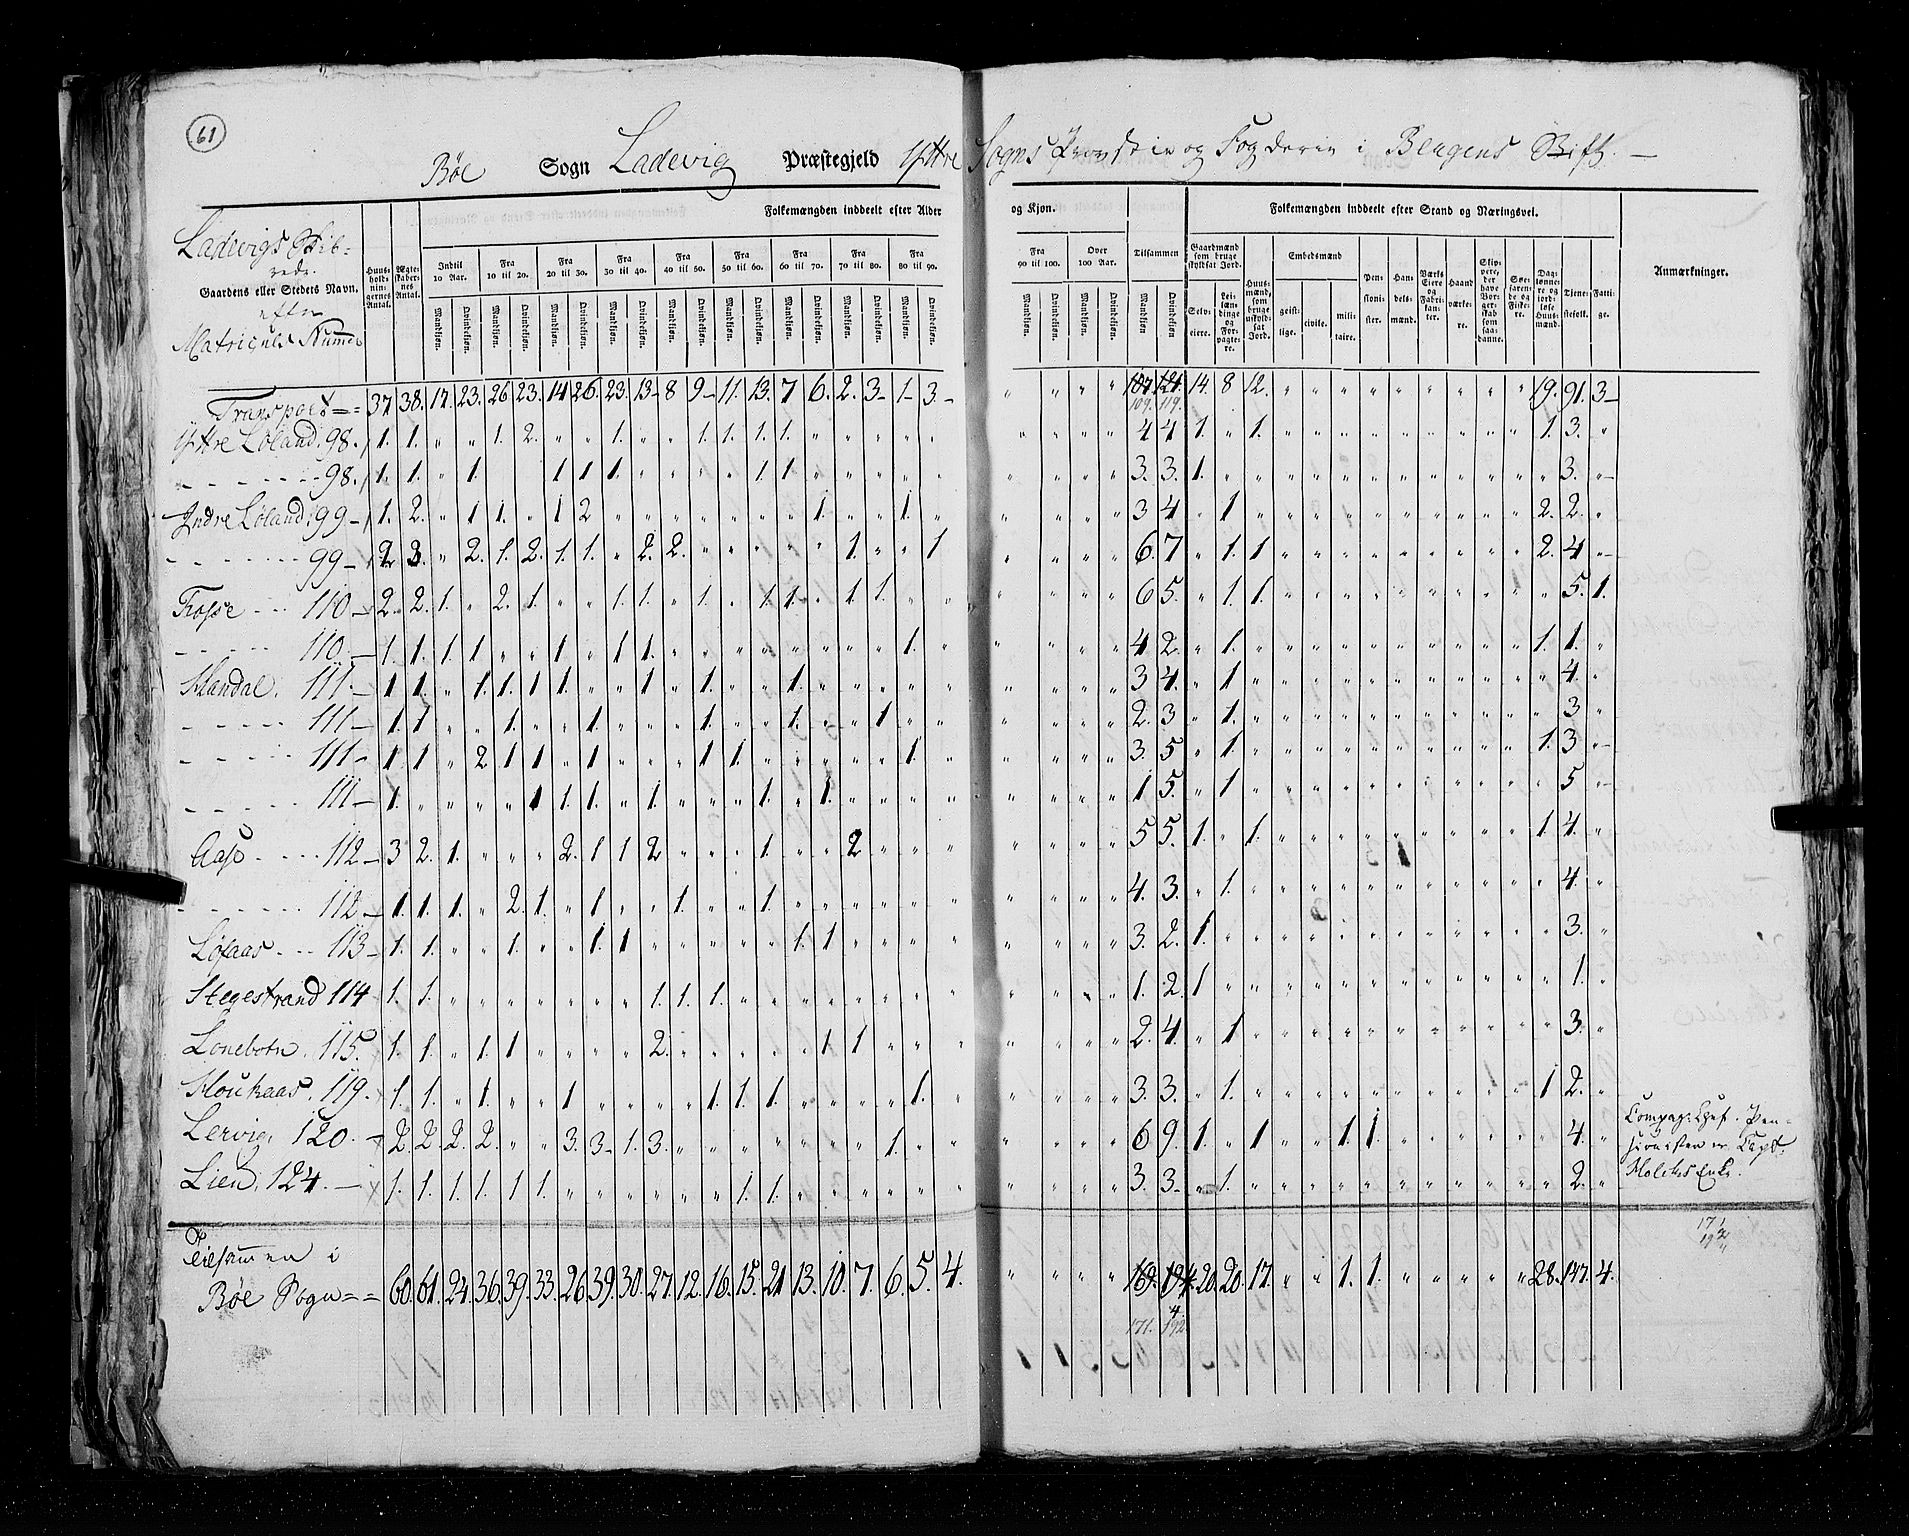 61
Bøe Sogn Ladevig Præstegjeld Yttre Sogns Provstie og Fogderie i Bergens Stift. —
Folkemængden inddeelt efter Alder og Kjøn.
Folkemængden inddeelt efter Stand og Næringsvei.
Anmærkninger.
Ladevigs Skib-
rede.
Gaardens eller Stedets Navn.
efter
Matriculs Numer
Huus-holdnin-gernes Antal.
Ægte-skaber-nes Antal.
Indtil 10 Aar.
Fra 10 til 20.
Fra 20 til 30.
Fra 30 til 40.
Fra 40 til 50.
Fra 50 til 60.
Fra 60 til 70.
Fra 70 til 80.
Fra 80 til 90.
Fra 90 til 100.
Over 100 Aar.
Tilsammen
Mandkjøn. Qvindekjøn.
Gaardmænd som bruge skyldsat Jord.
Selv-eiere.
Lei-læn-dinge og For-pagte-re.
Huus-mænd, som bruge uskyld-sat Jord.
Embedsmænd
geist-lige. civile. mili-taire.
Pen-sioni-ster.
Han-dels-mænd.
Værks Eiere og Fabri-kan-ter.
Haand værke-re.
Skip-pere, der have Bor-ger-skab som saa-danne.
Søe-faren-de og Fiske-re.
Dag-lønne-re og jord-løse Huus-mænd.
Tjene-stefolk.
Fatti-ge.
Transport 37 38. 17. 23. 26 23. 14 26. 23. 13 8 9 11. 13. 7 6. 2. 3 1 3. 107. 121. 14. 8 12. 19. 91. 3
109. 119.
Yttre Løland. 98. 1. 1. 1. 2. 1. 1. 1. 1. 1. 4 4 1. 1. 1. 3.
98. 1. 1. 1. 1 1 1. 1 1. 3. 3. 1. 3.
Indre Løland. 99 1. 2. 1 1. 1 2 1. 1. 3 4 1 2. 2.
99 2 3. 2. 1. 2. 1. 1. 2. 2. 1. 1. 6. 7 1. 1 2. 4
110 2. 2. 1. 2. 1. 1. 1. 1. 1. 1. 1. 1. 6 5. 1. 1. 5. 1.
110. 1. 1. 1. 1 1. 1 1. 1. 4 2. 1. 1. 1.
111 1 1. 1. 1. 1 1. 1. 1. 1. 3 4. 1 4.
111 1. 1 1. 1. 1. 1. 1. 2. 3 1. 3
111 1. 1 2 1 1. 1. 1 1. 1. 3. 5 1. 1. 3
111 1. 1 1. 1. 1. 1. 1. 1 5. 1 5
Aase 112 3 2. 1. 2. 1 1 2 1. 2 5 5. 1. 1. 1 4.
112 1. 1. 1. 2. 1. 1 1. 1. 4. 3. 1. 4.
113 1. 1. 1. 1. 1 1. 1. 3. 2. 1. 3.
Stegestrand 114 1. 1. 1. 1. 1. 1. 2. 1 1.
Lonebotn. 115. 1. 1. 1. 1 2. 1 1. 2. 4. 1 3.
119. 1. 1. 1. 1 1. 1. 1 1. 3. 3. 1. 1 2.
Lervig, 120. 2. 2. 2. 2. 3. 3 1. 3. 1. 6 9. 1. 1 1. 1. 4.
Lien, 124. 1. 1. 1. 1. 1 1. 1. 1. 3. 3 1. 2.
Compag: Chef. Pen-
sionisten er Capt.
Holcks Enke.
Tilsammen i
Bøe Sogn 60. 61. 24. 36. 39. 33. 26 39. 30. 27. 12. 16. 15. 21 13. 10. 7. 6. 5. 4. 169. 194. 20. 20. 17. 1. 1. 28. 147. 4.
171. 192
171
192